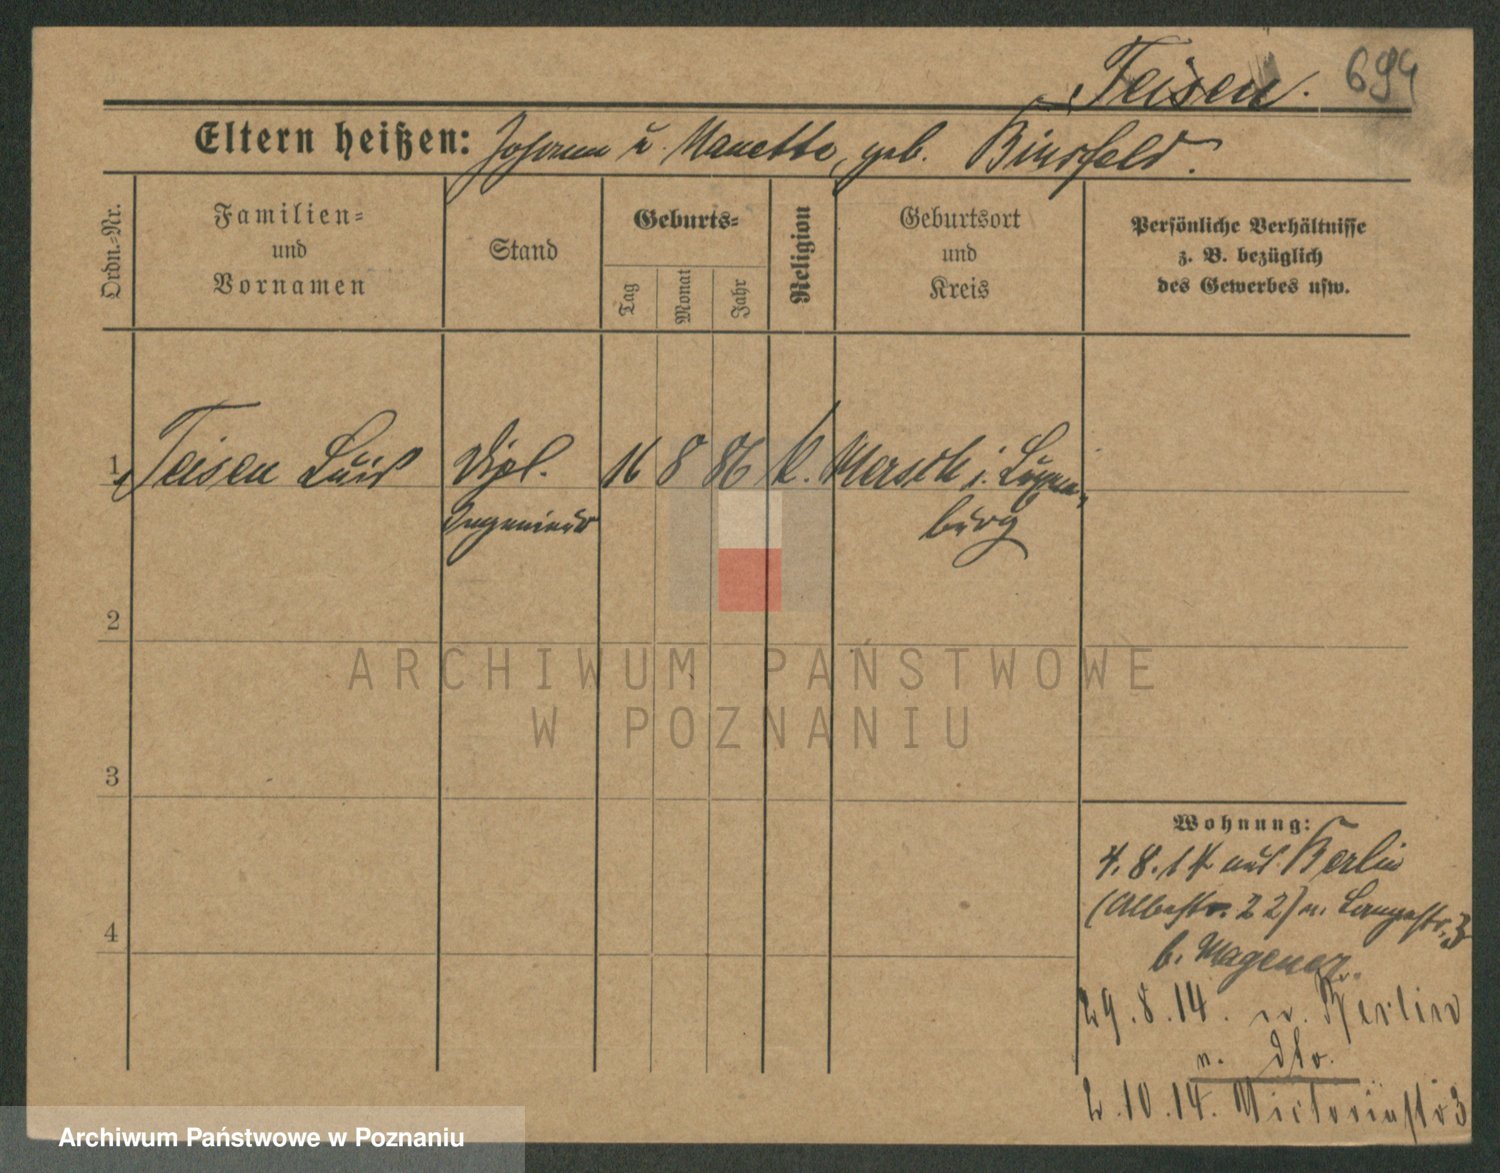 Teisen. 694
Eltern heißen: Johann u. Manette, geb. Binsfeld.
Ordn.-Nr.
Familien-
und
Vornamen
Stand
Geburts-
Tag
Monat
Jahr
Religion
Geburtsort
und
Kreis
Persönliche Verhältnisse
z. B. bezüglich
des Gewerbes usw.
1 Teisen Luis Dipl. 16 8 86 k. Mersch i. Luxem-
Ingenieur burg
2
ARCHIWUM PAŃSTWOWE
W POZNANIU
3
Wohnung:
4.8.14 aus Berlin
22) n. Langestr. 3
4
b. Wagener.
29.8.14. n. Berlin
n. dto.
2.10.14. Victoriastr 3
Archiwum Państwowe w Poznaniu